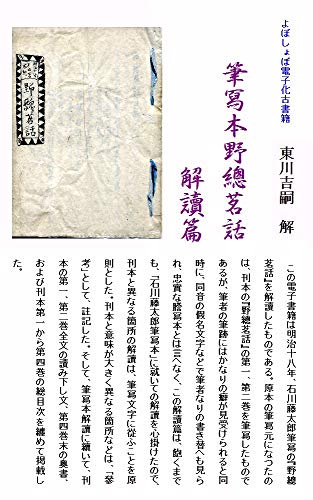 よぼしょぼ電子化古書籍
東川吉嗣 解
筆寫本野總茗話
解讀篇
野總茗話
この電子書籍は明治十八年、石川藤太郎筆寫の『野總
茗話』を解讀したものである。原本の筆寫元になつたの
は、刊本の『野總茗話』の第一、第二巻を筆寫したもので
あるが、筆者の筆跡にはかなりの癖が見受けられると同
時に、同音の假名文字などで筆者なりの書き替へも見ら
れ、忠實な謄寫本とは言へなく、この解讀篇は、飽くまで
も、「石川藤太郎筆寫本」に就いての解讀を心掛けたので、
刊本と異なる箇所の解讀は、筆寫文字に從ふことを原
則とした。刊本と意味が大きく異なる箇所などは、「參
考」として、註記した。そして、筆寫本解讀に續いて、刊
本の第一、第二巻全文の讀み下し文、第四巻末の奧書、
および刊本第一から第四巻の總目次を纏めて掲載し
た。